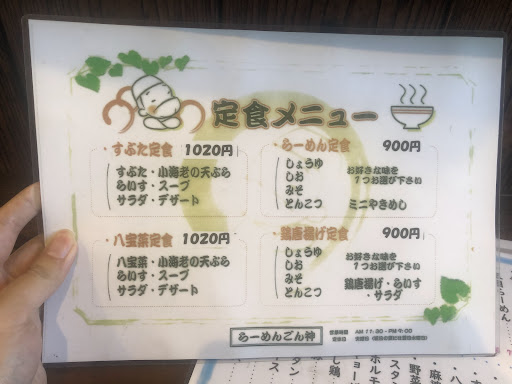 定食メニュー
・すぶた定食 1020円
すぶた・小海老の天ぷら
らいす・スープ
サラダ・デザート
・らーめん定食 900円
しょうゆ
しお
みそ
とんこつ
お好きな味を
1つお選び下さい
ミニやきめし
・八宝菜定食 1020円
八宝菜・小海老の天ぷら
らいす・スープ
サラダ・デザート
・鶏唐揚げ定食 900円
しょうゆ
しお
みそ
とんこつ
お好きな味を
1つお選び下さい
鶏唐揚げ・らいす
・サラダ
らーめんごん神
営業時間 AM 11:30 - PM
定休日